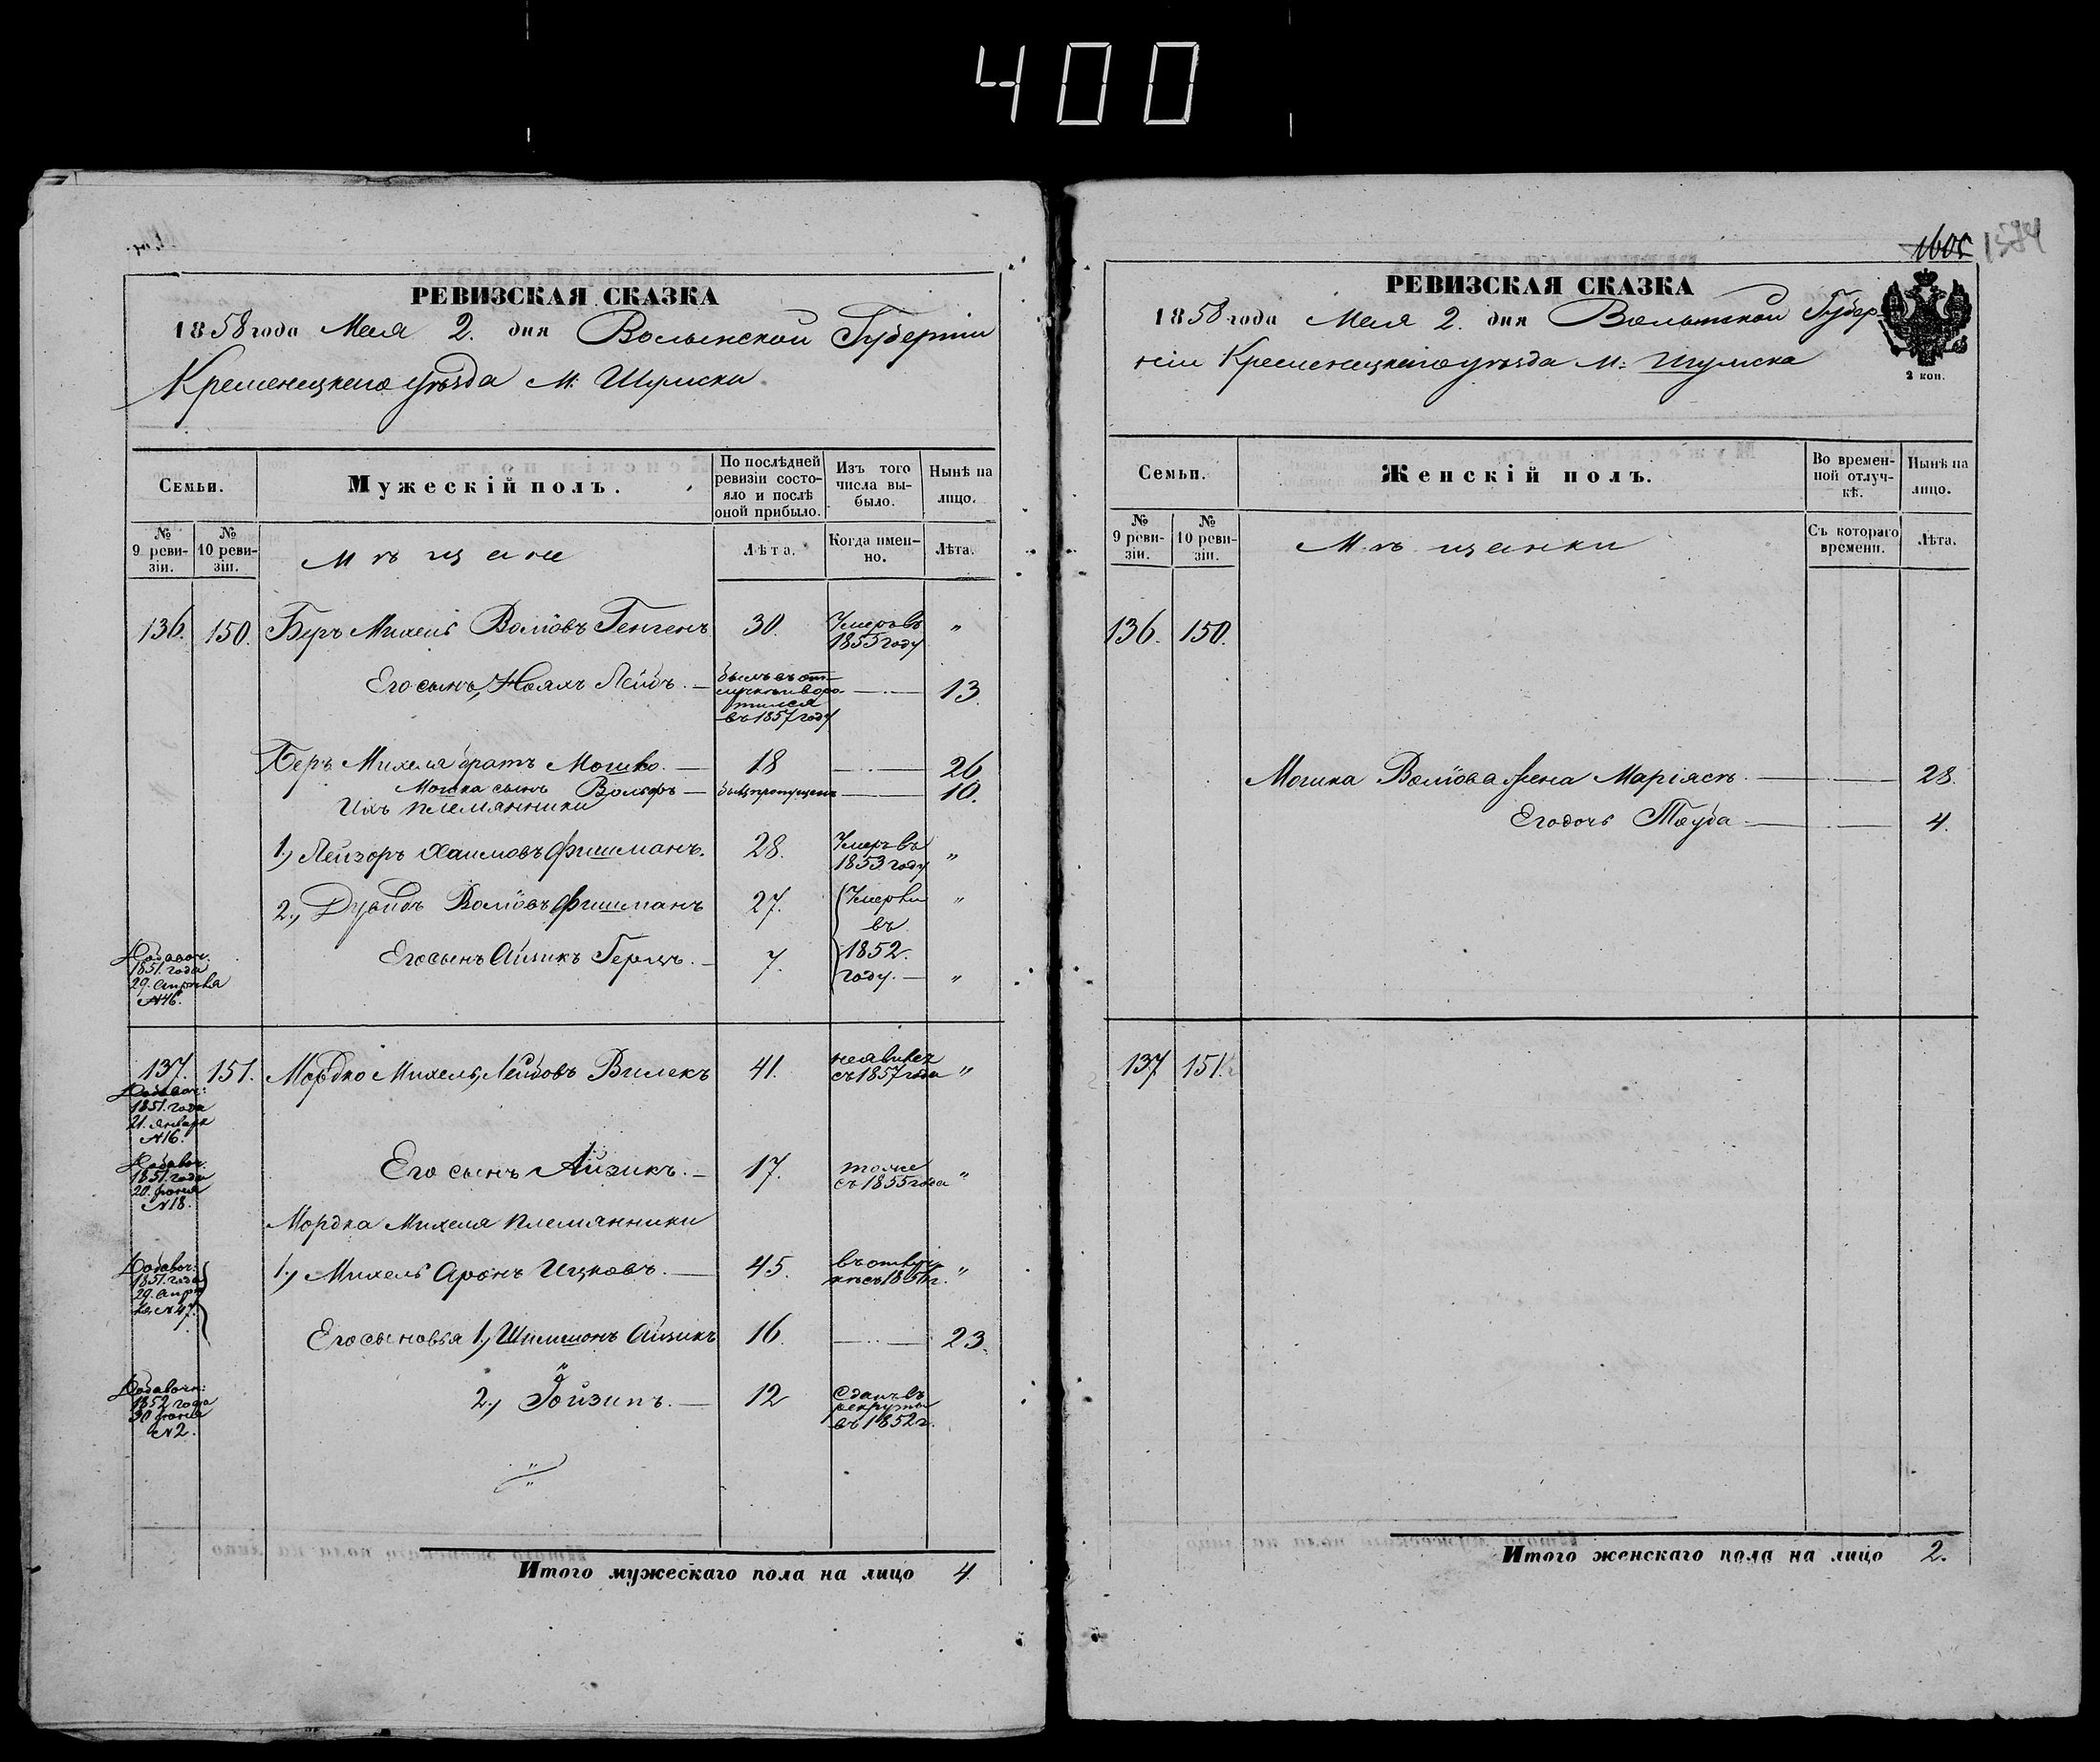 400
РЕВИЗСКАЯ СКАЗКА
1858 года Мая 2. дня Волынской Губерніи
Кременецкаго уѣзда М. Шумска
Семьи.
Мужескій полъ.
По послѣдней ревизіи состояло и послѣ оной прибыло.
Изъ того числа выбыло.
Нынѣ на лицо.
№ 9 ревизіи.
№ 10 ревизіи.
Мѣщане
Лѣта.
Когда именно.
Лѣта.
136. 150. Беръ Михель Волїовъ Генгенъ 30. Умеръ въ 1855 году "
Его сынъ, Лейбъ. — былъ въ отлучкѣ и воротился въ 1857 году — 13
Беръ Михеля братъ Мошко. — 18 — 26
Мошка сынъ Вольфъ — былъ пропущенъ — 10.
Ихъ племянники
1.) Лейзоръ Хаимовъ Фишманъ. 28. Умеръ въ 1853 году "
2.) Дувидъ Волїовъ Фишманъ 27. Умерли "
въ
Его сынъ Айзикъ Герцъ. — 7. 1852. году. — "
Добавоч. 1851. года 29. Апрѣля №46.
137. 151. Мордко Михель Лейбовъ Вилекъ 41. неявился съ 1857 года "
Добавоч: 1851. года 21. Января №16.
Его сынъ Айзикъ. — 17. тоже съ 1855 года "
Добавоч. 1851. года 20. №18.
Мордка Михеля племянники
1.) Михель Аронъ Ицковъ. — 45. въ отлучкѣ съ 1851 г. "
Добавоч: 1851. года 29. Апрѣля №47.
Его сыновья 1.) Шимшонъ Айзикъ 16. — 23.
2.) Іойзипъ. — 12 Сданъ въ рекруты въ 1852 г.
Добавочн: 1852 года 30 №2.
Итого мужескаго пола на лицо 4.
1605 1584
РЕВИЗСКАЯ СКАЗКА
1858 года Мая 2. дня Волынской Губер-
ніи Кременецкаго уѣзда М: Шумска
2 коп.
Семьи.
Женскій полъ.
Во временной отлучкѣ.
Нынѣ на лицо.
№ 9 ревизіи.
№ 10 ревизіи.
Мѣщанки
Съ котораго времени.
Лѣта.
136. 150.
Мошка Волїова жена Маріясъ — 28.
Его дочь Тауба — 4.
137 151.
Итого женскаго пола на лицо 2.